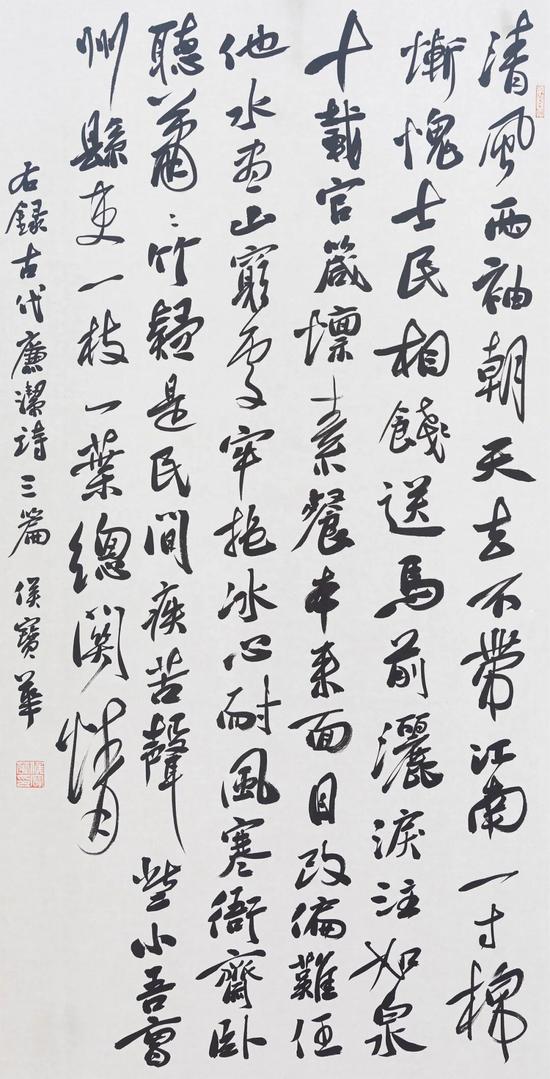 清風兩袖朝天去不帶江南一寸棉
慚愧士民相餞送馬前灑淚注如泉
十載官箴懍素餐本來面目改偏難任
他水盡山窮處牢抱冰心耐風寒衙齋臥
聽蕭〻竹疑是民間疾苦聲 些小吾曹
州縣吏一枝一葉總關情
右錄古代廉潔詩三篇 侯寶華